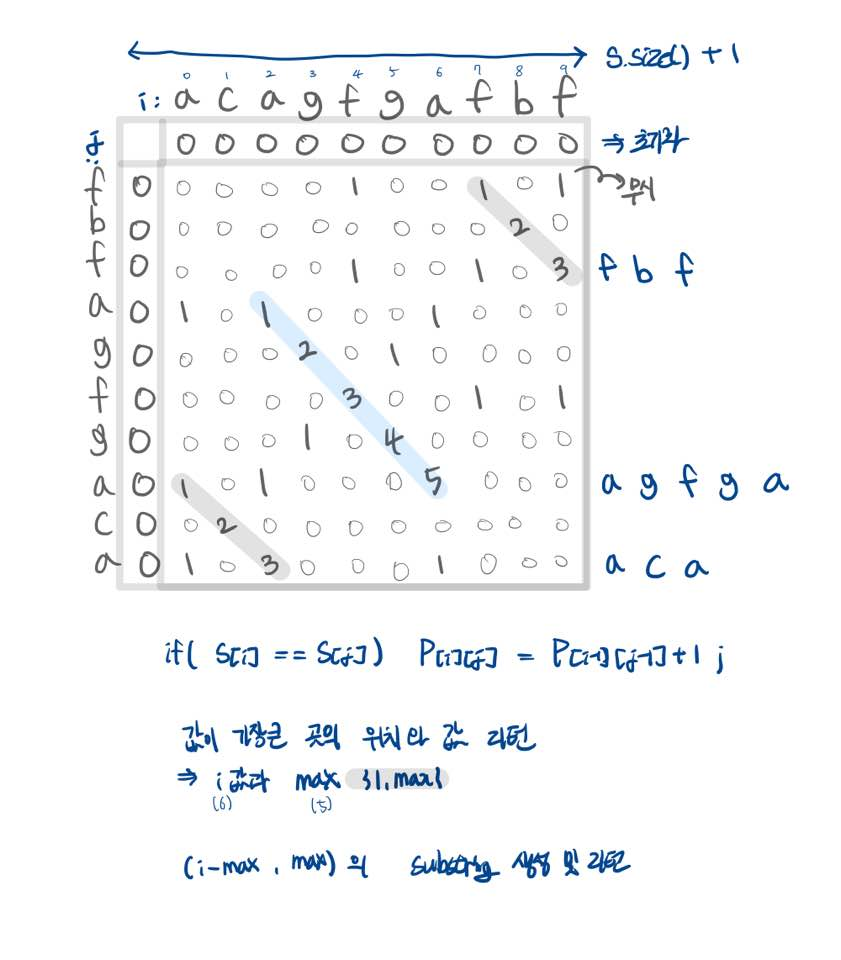 S.size() + 1
0 1 2 3 4 5 6 7 8 9
i: a c a g f g a f b f
j: 0 0 0 0 0 0 0 0 0 0 ⇒ 초기화
f 0 0 0 0 0 1 0 0 1 0 1 → 무시
b 0 0 0 0 0 0 0 0 0 2 0
f 0 0 0 0 0 1 0 0 1 0 3 f b f
a 0 1 0 1 0 0 0 1 0 0 0
g 0 0 0 0 2 0 1 0 0 0 0
f 0 0 0 0 0 3 0 0 1 0 1
g 0 0 0 0 1 0 4 0 0 0 0
a 0 1 0 1 0 0 0 5 0 0 0 a g f g a
c 0 0 2 0 0 0 0 0 0 0 0
a 0 1 0 3 0 0 0 1 0 0 0 a c a
if( S[i] == S[j] ) P[i][j] = P[i-1][j-1] + 1 ;
값이 가장큰 곳의 위치와 값 리턴
⇒ i값과 max {i, max}
(6) (5)
(i-max , max) 의 substring 생성 및 리턴